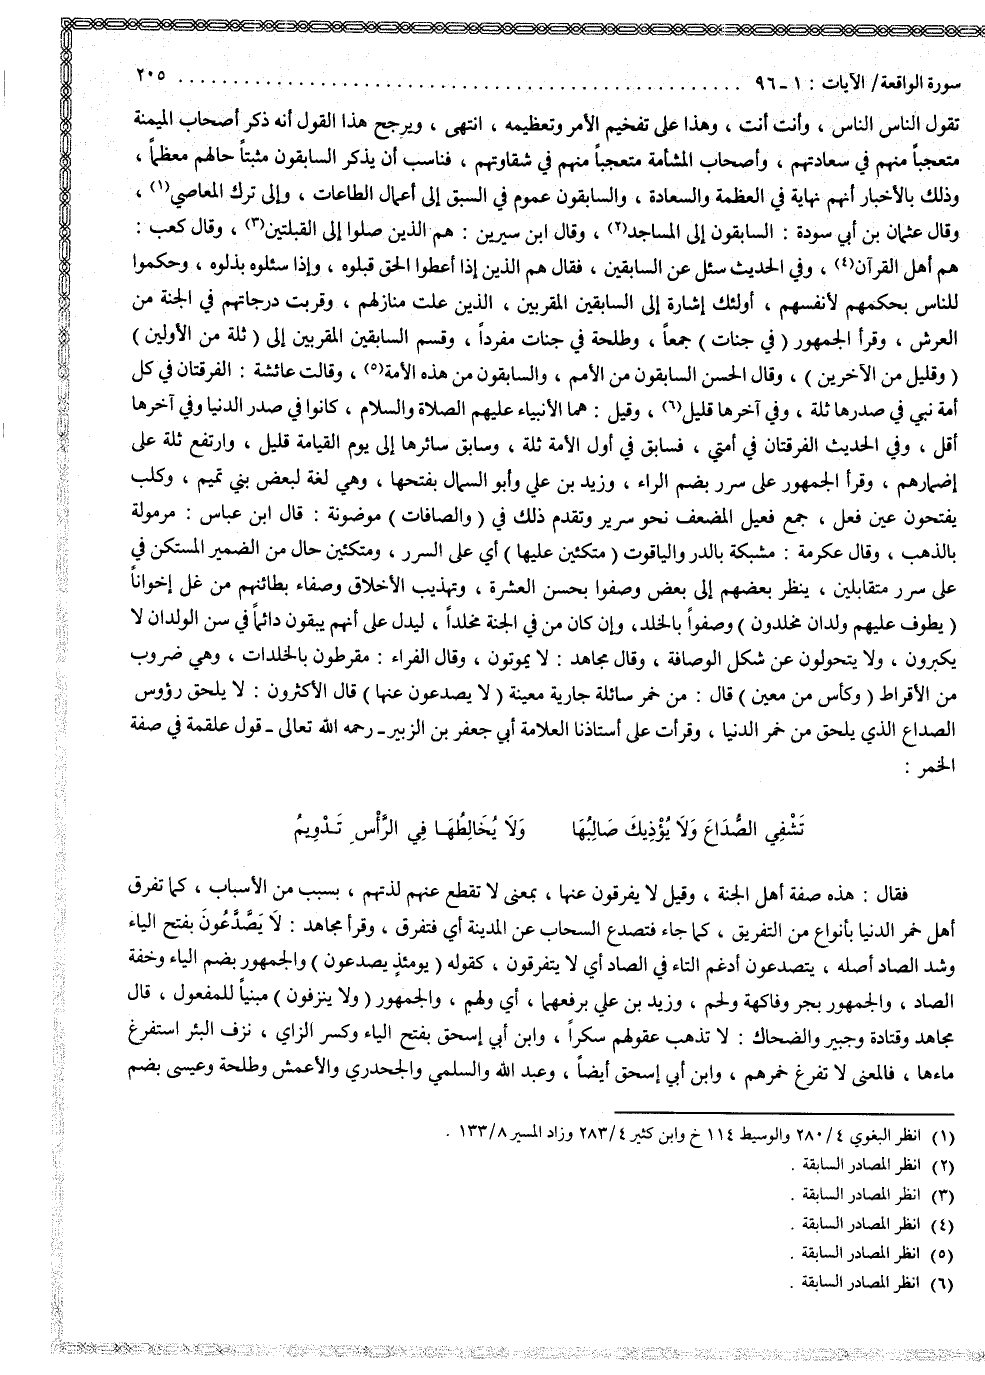 سورة الواقعة/ الآيات : ١ ـ ٩٦ . . . . . . . . . . . . . . . . . . . . . . . . . . . . . . . . . . . . . . . . . . . . . . . . . . ٢٠٥
تقول الناس الناس ، وأنت أنت ، وهذا على تفخيم الأمر وتعظيمه ، انتهى ، ويرجح هذا القول أنه ذكر أصحاب الميمنة
متعجباً منهم في سعادتهم ، وأصحاب المشأمة متعجباً منهم في شقاوتهم ، فناسب أن يذكر السابقون مثبتاً حالهم معظماً ،
وذلك بالأخبار أنهم نهاية في العظمة والسعادة ، والسابقون عموم في السبق إلى أعمال الطاعات ، وإلى ترك المعاصي(١) ،
وقال عثمان بن أبي سودة : السابقون إلى المساجد(٢) ، وقال ابن سيرين : هم الذين صلوا إلى القبلتين(٣) ، وقال كعب :
هم أهل القرآن(٤) ، وفي الحديث سئل عن السابقين ، فقال هم الذين إذا أعطوا الحق قبلوه ، وإذا سئلوه بذلوه ، وحكموا
للناس بحكمهم لأنفسهم ، أولئك إشارة إلى السابقين المقربين ، الذين علت منازلهم ، وقربت درجاتهم في الجنة من
العرش ، وقرأ الجمهور ( في جنات ) جمعاً ، وطلحة في جنات مفرداً ، وقسم السابقين المقربين إلى ( ثلة من الأولين )
( وقليل من الآخرين ) ، وقال الحسن السابقون من الأمم ، والسابقون من هذه الأمة(٥) ، وقالت عائشة : الفرقتان في كل
أمة نبي في صدرها ثلة ، وفي آخرها قليل(٦) ، وقيل : هما الأنبياء عليهم الصلاة والسلام ، كانوا في صدر الدنيا وفي آخرها
أقل ، وفي الحديث الفرقتان في أمتي ، فسابق في أول الأمة ثلة ، وسابق سائرها إلى يوم القيامة قليل ، وارتفع ثلة على
إضمارهم ، وقرأ الجمهور على سرر بضم الراء ، وزيد بن علي وأبو السمال بفتحها ، وهي لغة لبعض بني تميم ، وكلب
يفتحون عين فعل ، جمع فعيل المضعف نحو سرير وتقدم ذلك في ( والصافات ) موضونة : قال ابن عباس : مرمولة
بالذهب ، وقال عكرمة : مشبكة بالدر والياقوت ( متكئين عليها ) أي على السرر ، ومتكئين حال من الضمير المستكن في
على سرر متقابلين ، ينظر بعضهم إلى بعض وصفوا بحسن العشرة ، وتهذيب الأخلاق وصفاء بطائنهم من غل إخواناً
( يطوف عليهم ولدان مخلدون ) وصفواً بالخلد، وإن كان من في الجنة مخلداً ، ليدل على أنهم يبقون دائماً في سن الولدان لا
يكبرون ، ولا يتحولون عن شكل الوصافة ، وقال مجاهد : لا يموتون ، وقال الفراء : مقرطون بالخلدات ، وهي ضروب
من الأقراط ( وكأس من معين ) قال : من خمر سائلة جارية معينة ( لا يصدعون عنها ) قال الأكثرون : لا يلحق رؤوس
الصداع الذي يلحق من خمر الدنيا ، وقرأت على أستاذنا العلامة أبي جعفر بن الزبير ـ رحمه الله تعالى ـ قول علقمة في صفة
الخمر :
تَشْفِي الصُّدَاعَ وَلَا يُؤْذِيكَ صَالِبُهَا    وَلَا يُخَالِطُهَا فِي الرَّأْسِ تَدْوِيمُ
فقال : هذه صفة أهل الجنة ، وقيل لا يفرقون عنها ، بمعنى لا تقطع عنهم لذتهم ، بسبب من الأسباب ، كما تفرق
أهل خمر الدنيا بأنواع من التفريق ، كما جاء فتصدع السحاب عن المدينة أي فتفرق ، وقرأ مجاهد : لَا يَصَّدَّعُونَ بفتح الياء
وشد الصاد أصله ، يتصدعون أدغم التاء في الصاد أي لا يتفرقون ، كقوله ( يومئذٍ يصدعون ) والجمهور بضم الياء وخفة
الصاد ، والجمهور بجر وفاكهة ولحم ، وزيد بن علي برفعهما ، أي ولهم ، والجمهور ( ولا ينزفون ) مبنياً للمفعول ، قال
مجاهد وقتادة وجبير والضحاك : لا تذهب عقولهم سكراً ، وابن أبي إسحق بفتح الياء وكسر الزاي ، نزف البئر استفرغ
ماءها ، فالمعنى لا تفرغ خمرهم ، وابن أبي إسحق أيضاً ، وعبد الله والسلمي والجحدري والأعمش وطلحة وعيسى بضم
(١) انظر البغوي ٢٨٠/٤ والوسيط ١١٤ خ وابن كثير ٢٨٣/٤ وزاد المسير ١٣٣/٨ .
(٢) انظر المصادر السابقة .
(٣) انظر المصادر السابقة .
(٤) انظر المصادر السابقة .
(٥) انظر المصادر السابقة .
(٦) انظر المصادر السابقة .